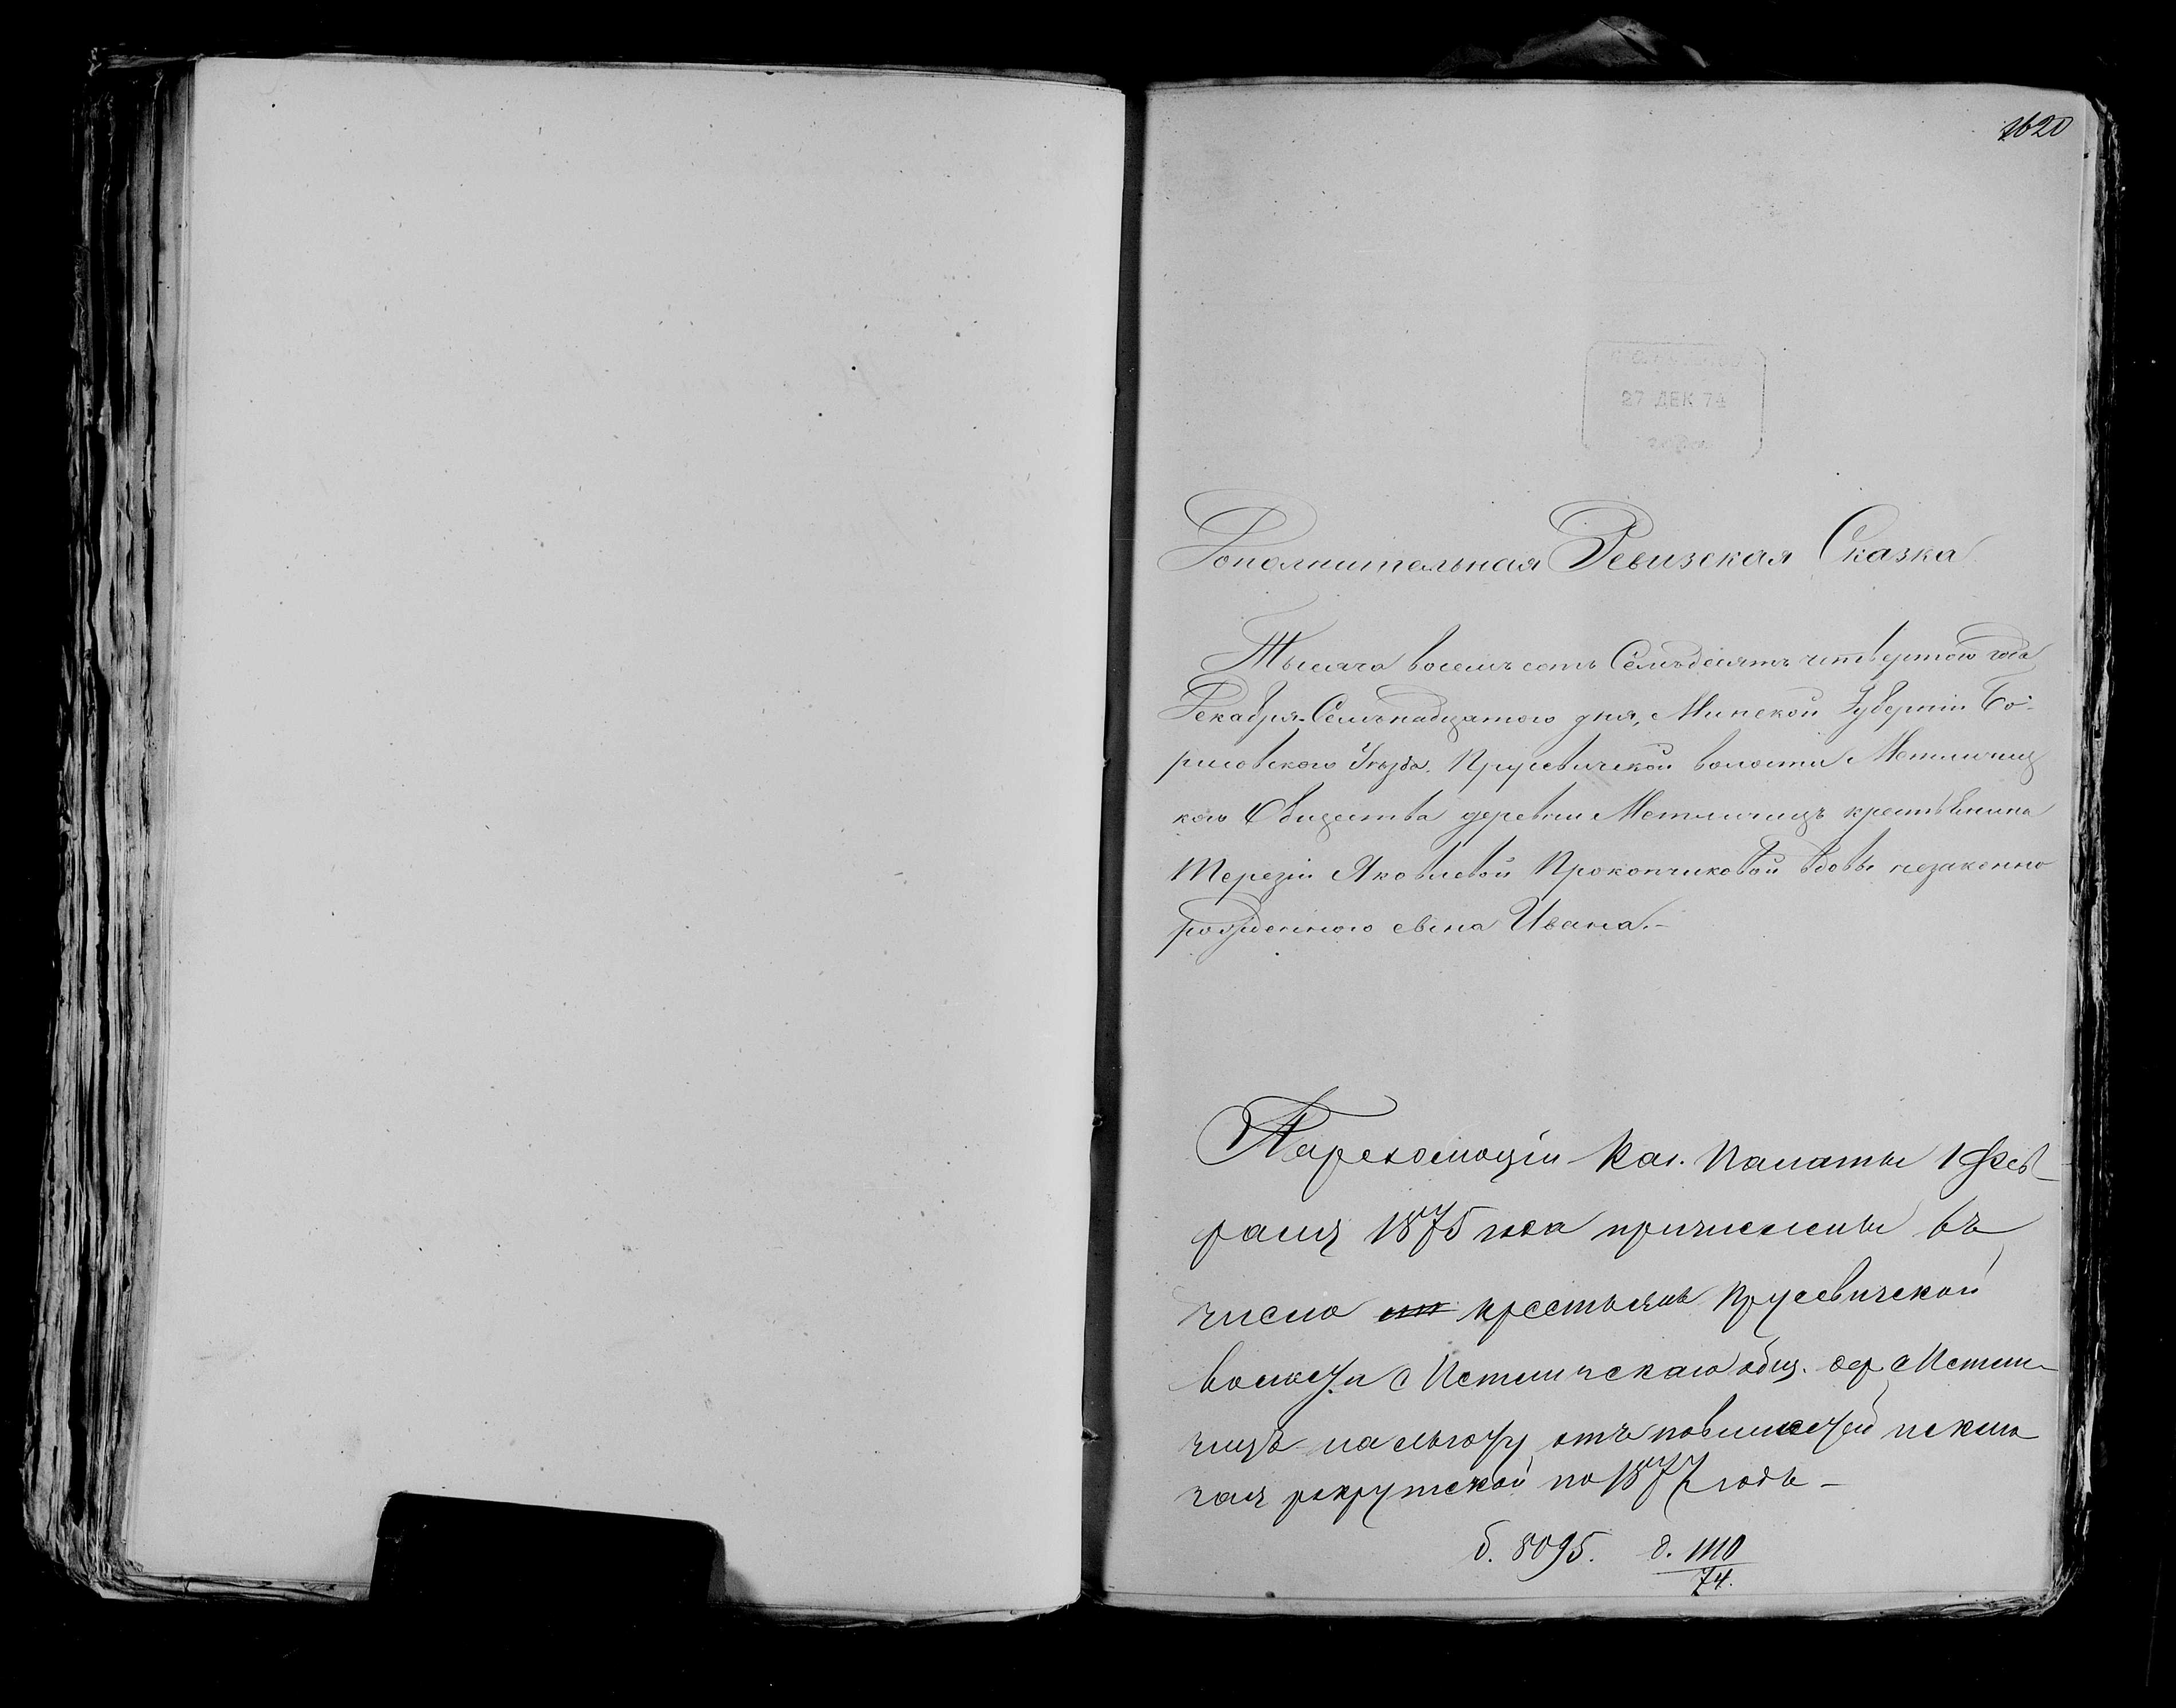 1620
27 ДЕК 74
Дополнительная Ревизская Сказка
Тысяча восемъ сотъ Семьдесятъ четвертого года
Декабря Семьнадцатого дня, Минской Губерніи Бо-
рисовского Уѣзда, Прусевичской волости Метличиц
кого Общества деревни Метличицъ крестьянина
Терезіи Яковлевой Прокопчиковой вдовы незаконно
рожденного сына Ивана.-
По резолюціи Каз. Палаты 1 Фев-
раля 1875 года причислены въ
число крестьянъ Прусевичской
волости Метличскаго общ. дер. Метли-
чицъ на льготу отъ повинностей исклю
чая рекрутской по 1877 годъ -
б. 8095. д. 1110
74.